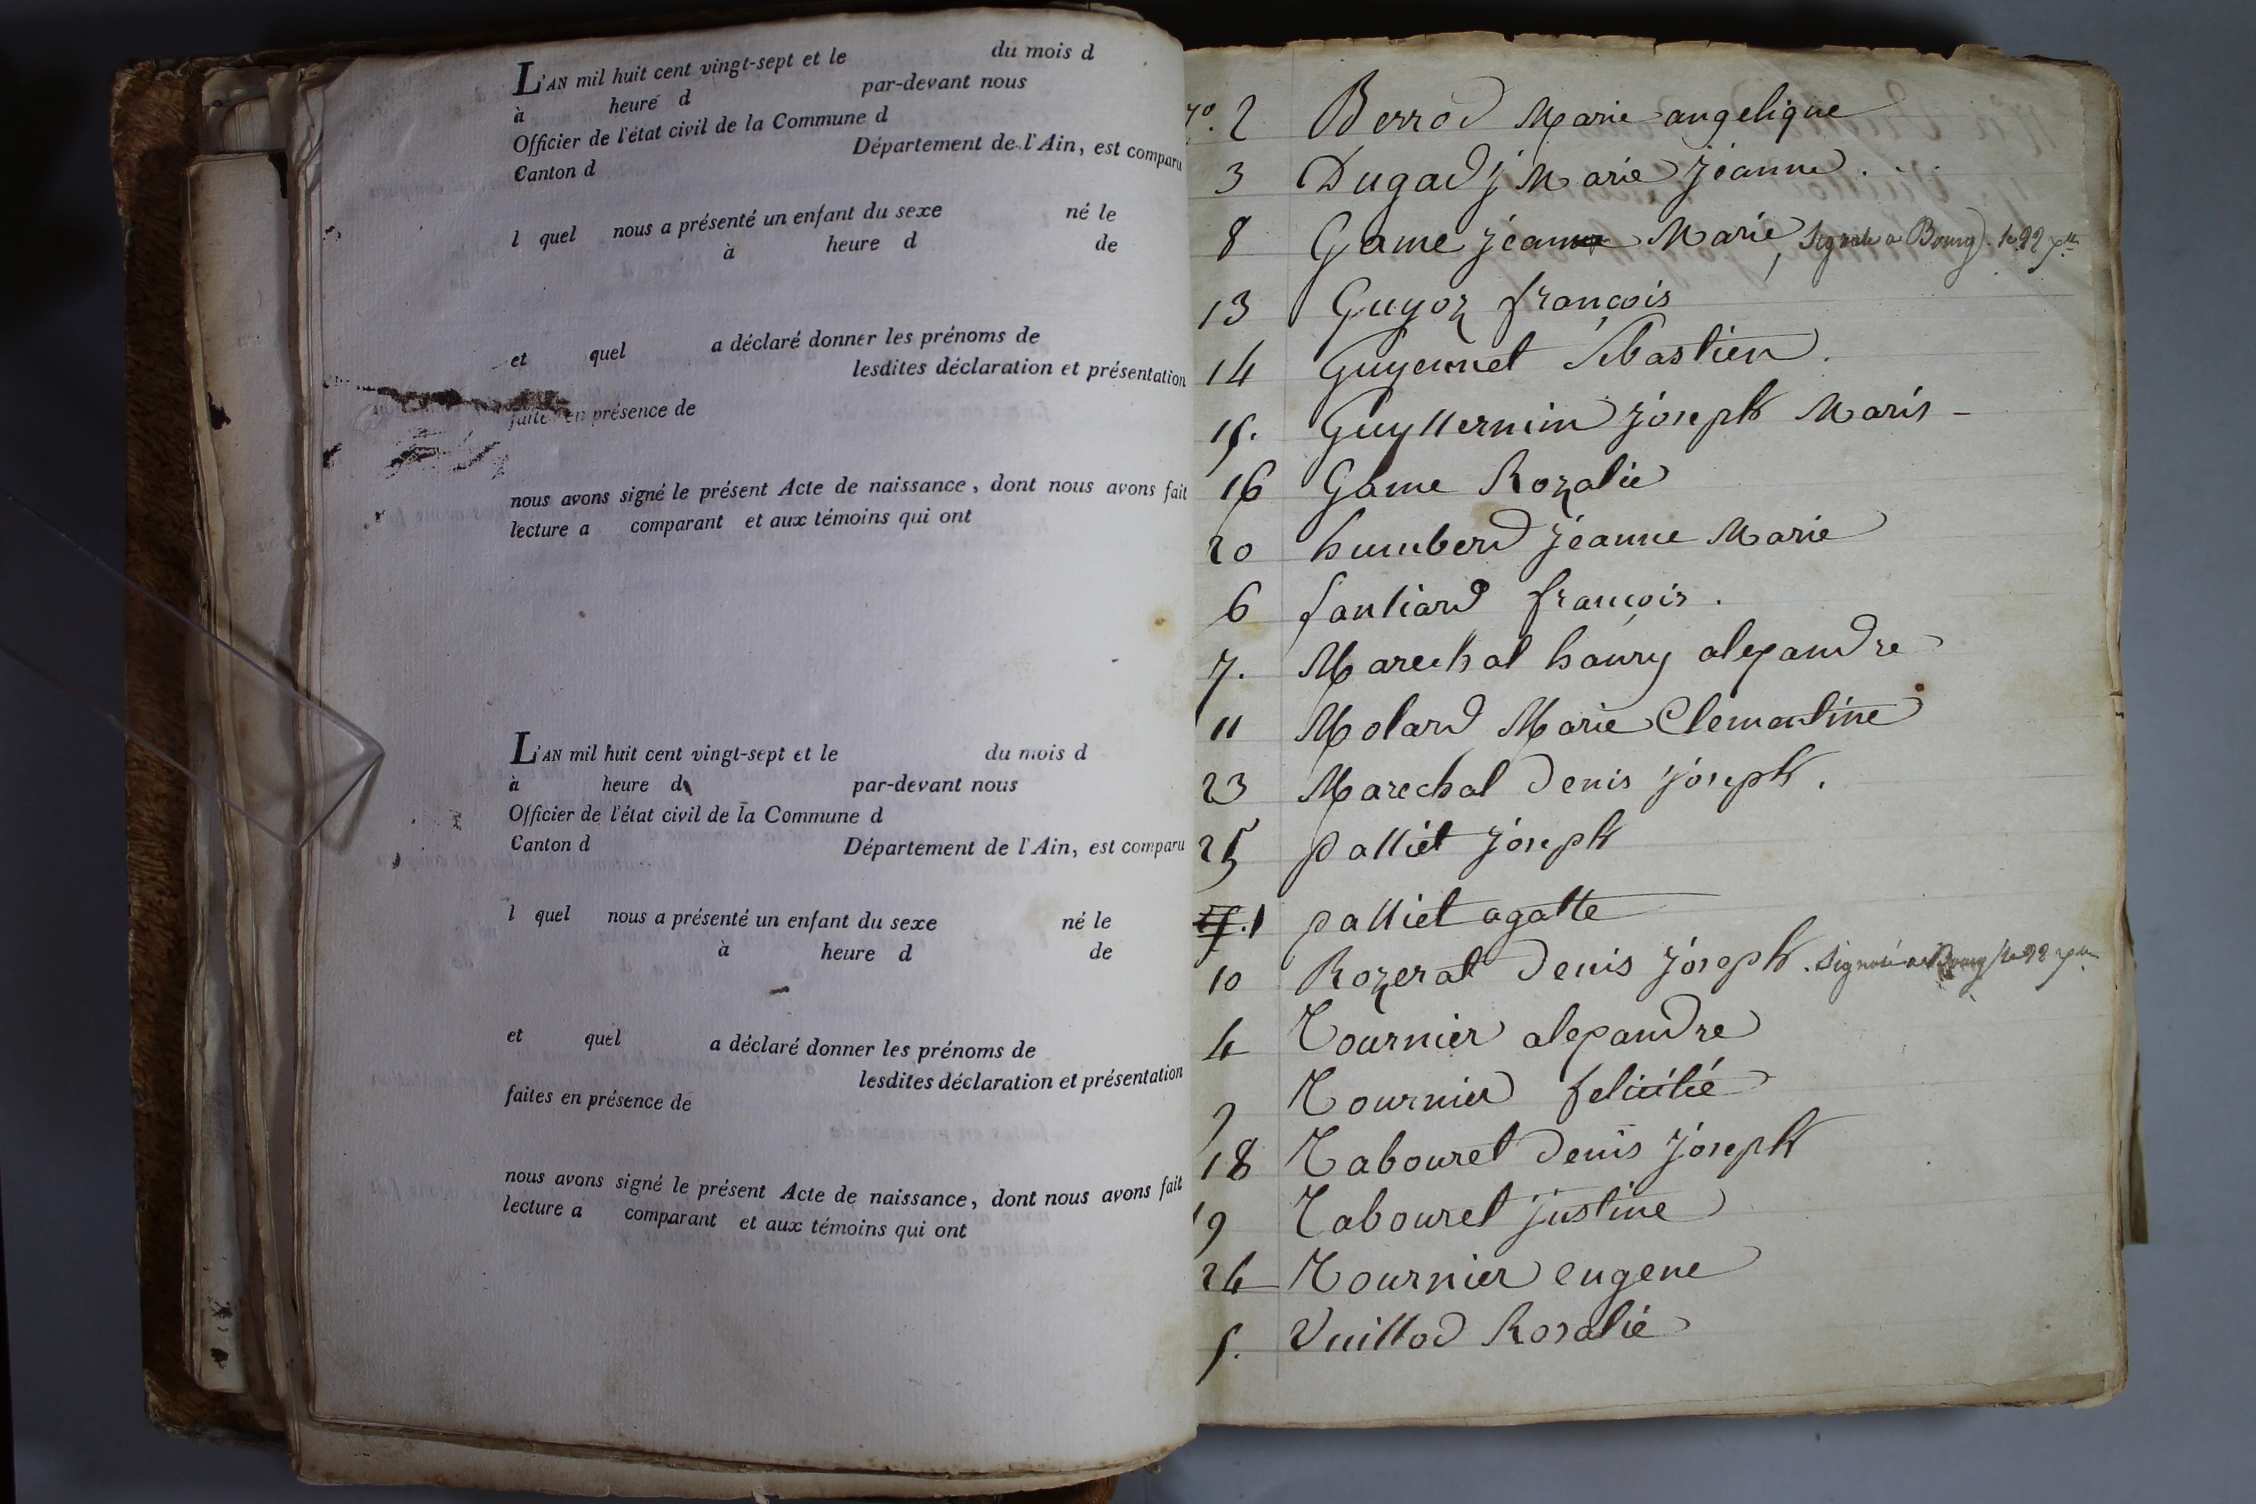 L'AN mil huit cent vingt-sept et le du mois d
à heure d par-devant nous
Officier de l'état civil de la Commune d
Canton d Département de l'Ain, est comparu
l quel nous a présenté un enfant du sexe né le
à heure d de
et quel a déclaré donner les prénoms de
lesdites déclaration et présentation
faites en présence de
nous avons signé le présent Acte de naissance, dont nous avons fait
lecture a comparant et aux témoins qui ont
L'AN mil huit cent vingt-sept et le du mois d
à heure d par-devant nous
Officier de l'état civil de la Commune d
Canton d Département de l'Ain, est comparu
l quel nous a présenté un enfant du sexe né le
à heure d de
et quel a déclaré donner les prénoms de
lesdites déclaration et présentation
faites en présence de
nous avons signé le présent Acte de naissance, dont nous avons fait
lecture a comparant et aux témoins qui ont
No. 2 Berrod Marie angelique
3 Dugad j Marie jeanne
8 Game jean Marie, signalé a Bourg le 22
13 Guyoz françois
14 Guyennet Sebastien.
15. Guyllermin joseph Marie
16 Game Rozalie
20 humberd jeanne Marie
6 françois.
7. Marechal hanry alexandre
11 Molard Marie Clementine
23 Marechal Denis joseph.
25 palliet joseph
1 palliet agatte
10 Rozerat Denis joseph. signalé a Bourg le 22
4 Tournier alexandre
9 Tournier felicitié
18 Tabouret Denis joseph
19 Tabouret justine
24 Tournier eugene
5. Vuillod Rosalie